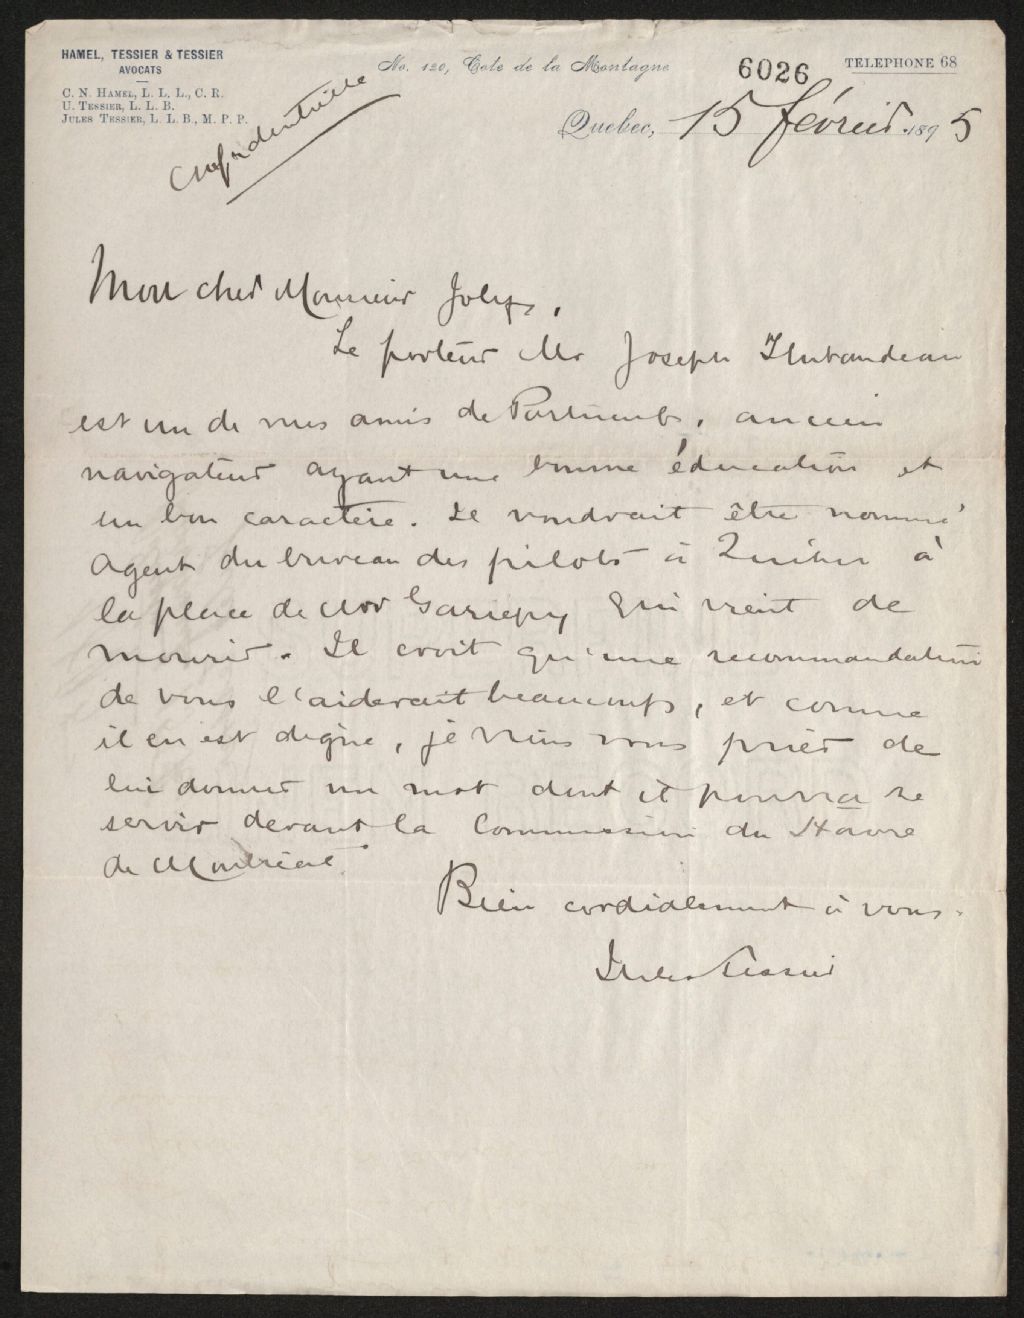 HAMEL, TESSIER & TESSIER
AVOCATS
C. N. HAMEL, L. L. L., C. R.
U. TESSIER, L. L. B.
JULES TESSIER, L. L. B., M. P. P.
No. 120, Cote de la Montagne
6026
TELEPHONE 68
Quebec, 15 février 1895
Confidentielle
Mon cher Monsieur Joly,
Le porteur Mr Joseph Thibaudeau
est un de mes amis de Portneuf, ancien
navigateur ayant une bonne éducation et
un bon caractère. Il voudrait être nommé
Agent du bureau des pilots à Québec à
la place de Mr Gariepy qui vient de
mourir. Il croit qu'une recommandation
de vous l'aiderait beaucoup, et comme
il en est digne, je viens vous prier de
lui donner un mot dont il pourra se
servir devant la Commission du Havre
de Montréal.
Bien cordialement à vous.
Jules Tessier